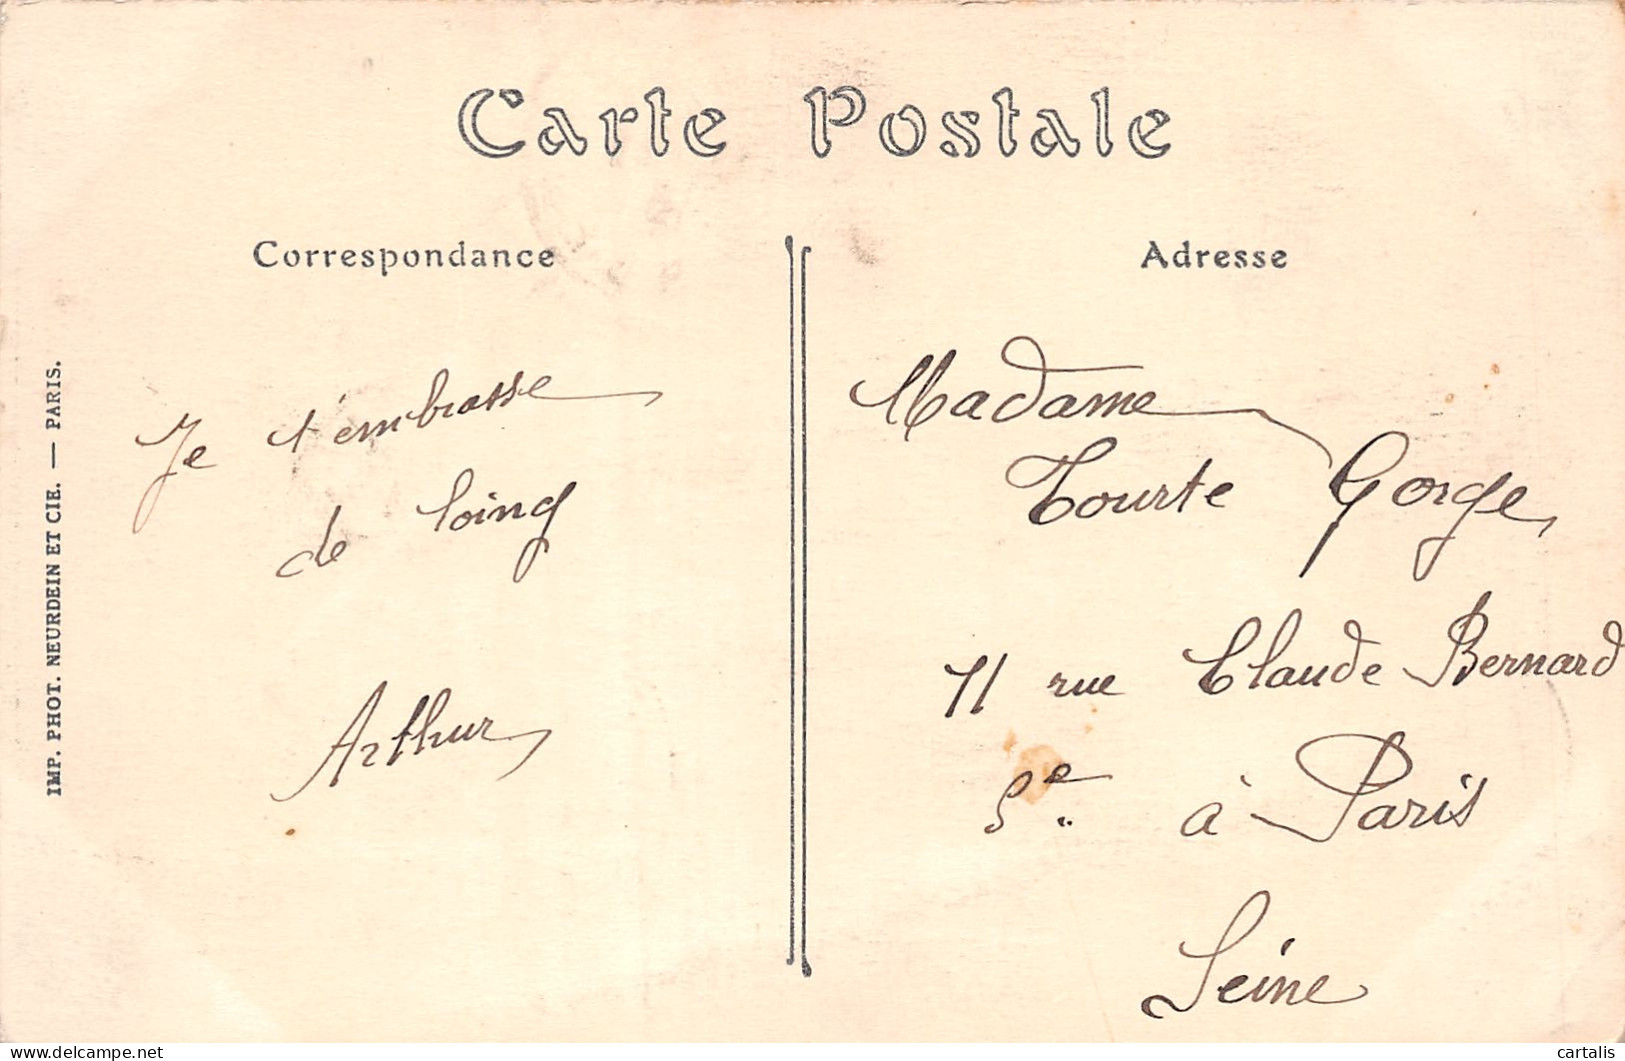 Carte Postale
Correspondance
Adresse
IMP. PHOT. NEURDEIN ET CIE. — PARIS.
Je t'embrasse
de loing
Arthur
Madame
Tourte Gorge
11 rue Claude Bernard
5e à Paris
Seine
www.delcampe.net
cartalis